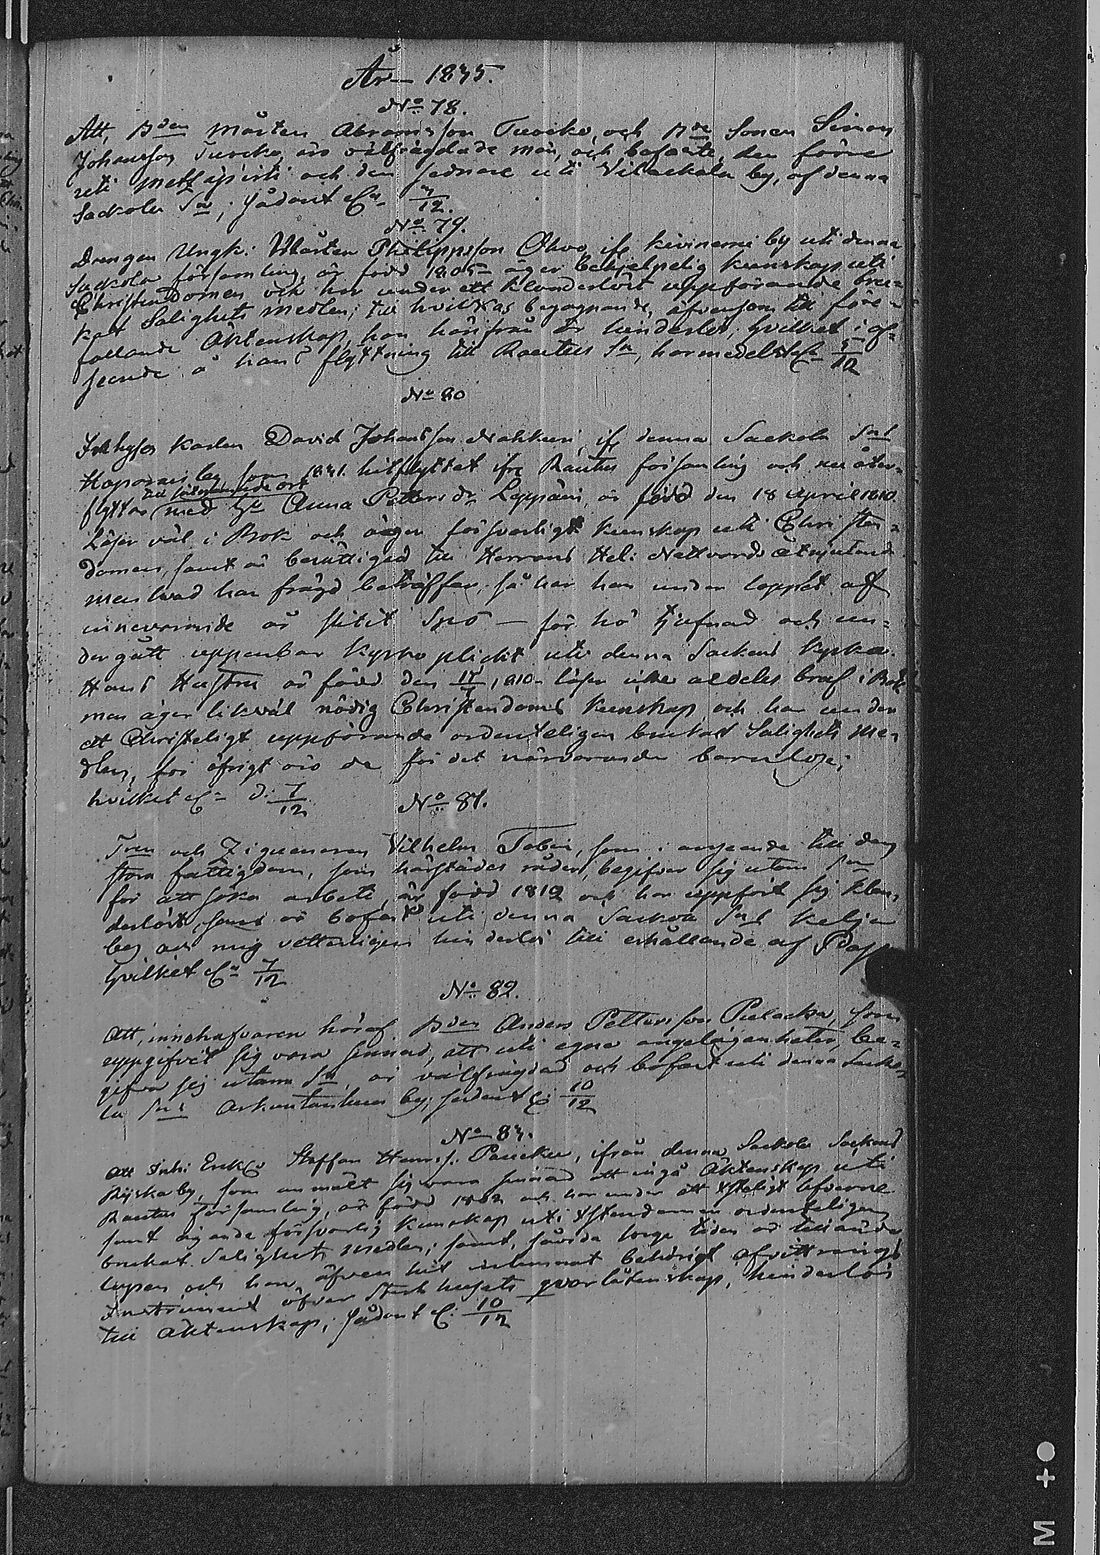 År 1835.
No 78.
Att, Bden Mårten Abramsson Turcke och Bde Sonen Simon
Johansson Turcke äro välfrägdade män, och bofaste, den förre
uti Metsäpirti och den sednare uti Vilackala by, af denna
Sackola Sn; sådant &c 7/12.
No 79.
Drengen Ungk. Mårten Philippsson Ohvo ifr. Kiviniemi by uti denna
Sackola församling, är född 1805 äger behjelpelig kunskap uti
Christendomen och har under ett klanderlöst uppförande bru-
kat Salighets medlen; till hvilkas begagnande, äfvensom till före-
fallande Äktenskap, han härifrån är hinderlös; hvilket i af-
seende å hans flyttning till Rautus Sn, harmedelst &c 5/12
No 80
Inhyses Karlen David Johansson Nahkuri, ifr denna Sackola Sns
Haparais by, som 1831. hitflyttat ifr Rautus församling och nu åter-
flyttar till sistnämnde ort med H. Anna Petters dr Leppäin, är född den 18 April 1810
Läser väl i Bok och äger försvarligt kunskap uti Christen-
domen, samt är berättigad till Herrans Hel. Nattvards åtnjutande
men hvad han frägd beträffar, så har han under loppet af
innevarande år slitit Spö — för hö tjufnad och un-
dergått uppenbar Kyrko plickt uti denna Sackens Kyrka.
Hans Hustru är född den 17/7 1810 läser icke aldeles braf i Bok
man äger likväl nödig Christendoms kunskap och har under
ett Christeligt uppförande ordenteligen brukat Salighets me-
dlen, för öfrigt äro de för det närvarande barnlöse;
hvilket &c d. 7/12
No 81.
Tren och Ziguenaren Vilhelm Tobin, som i anseende till den
stora fattigdom, som härstädes råder, begifver sig utom Sn
för att söka arbete, är född 1812 och har uppfört sig klan-
derlöst, samt är bofast uti denna Sackola Sns Kelja
by och mig vetterligen hinderlös till erhållande af Pass
hvilket &c 7/12
No 82.
Att, innehafvaren häraf Bden Anders Pettersson Pulacka, som
uppgifvit sig vara sinnad, att uti egne angelägenheter be-
gifva sig utom Sn, är välfrägdad och bofast uti denna Sacko-
la Sns Arkuntanhua by; sådant &c 10/12
No 83.
Att Inhs Enkl. Staffan Hanss. Paucku, ifrån denna Sackola Sockens
Riiska by, som anmält sig vara sinnad att ingå Äktenskap uti
Rautus församling, är född 1802 och har under ett Xsteligt lefverne
samt ägande försvarlig kunskap uti Xstendomen ordenteligen
brukat Salighets medlen; samt, såvida sorge tiden är tillända
lupen och han, äfven hit inlemnat behörigt afvittrings
Instrument öfver Sterbhusets qvarlåtenskap, hinderlös
till Äktenskap; sådant &c 10/12
M